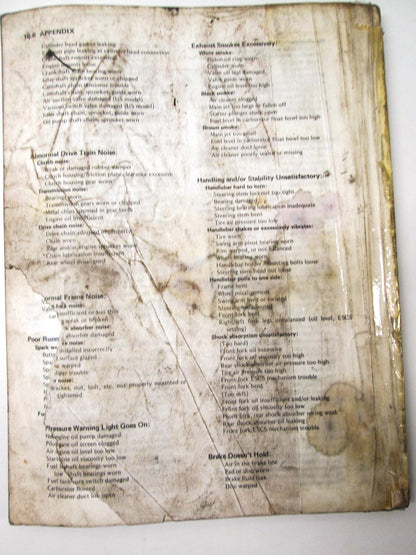 16-6 APPENDIX
Cylinder head gasket leaking
pipe leaking at cylinder head connection
runout excessive
Engine mounts loose
Crankshaft bearing worn
Idler shaft sprocket worn or chipped
Camshaft chain tensioner trouble
Camshaft chain, sprocket, guide worn
Air suction valve damaged (US model)
Vacuum switch valve damaged (US model)
Idler shaft chain, sprocket, guide worn
Oil pump shaft chain, sprocket worn
Abnormal Drive Train Noise:
Clutch noise:
Weak or damaged rubber damper
Clutch housing/friction plate clearance excessive
Clutch housing gear worn
Transmission noise:
Bearing worn
Transmission gears worn or chipped
Metal chips jammed in gear teeth
Engine oil insufficient
Drive chain noise:
Drive chain adjusted improperly
Chain worn
Rear and/or engine sprocket worn
Chain lubrication insufficient
Rear wheel misaligned
Frame Noise:
fork noise:
insufficient or too thin
weak or broken
absorber noise:
absorber damaged
Poor
noise:
installed incorrectly
surface glazed
warped
trouble
noise:
Bracket, nut, bolt, etc. not properly mounted or
tightened
Pressure Warning Light Goes On:
oil pump damaged
oil screen clogged
oil level too low
oil viscosity too low
bearings worn
bearings worn
switch damaged
Carburetor
Air cleaner duct
Exhaust Smokes Excessively:
White smoke:
Piston oil ring worn
Cylinder worn
Valve oil seal damaged
Valve guide worn
Engine oil level too high
Black smoke:
Air cleaner clogged
Main jet too large or fallen off
Starter plunger stuck open
Fuel level in carburetor float bowl too high
Brown smoke:
Main jet too small
Fuel level in carburetor float bowl too low
Air cleaner duct loose
Air cleaner poorly sealed or missing
Handling and/or Stability Unsatisfactory:
Handlebar hard to turn:
Steering stem locknut too tight
Bearing damaged
Steering bearing lubrication inadequate
Steering stem bent
Tire air pressure too low
Handlebar shakes or excessively vibrates:
Tire worn
Swing arm pivot bearing worn
Rim warped, or not balanced
Wheel bearing worn
Handlebar holder mounting bolts loose
Steering stem head nut loose
Handlebar pulls to one side:
Frame bent
Wheel misalignment
Swing arm bent or twisted
Steering
Front fork bent
Right/left fork legs unbalanced (oil level, ESCS
setting)
Shock absorption unsatisfactory:
(Too hard)
Front fork oil excessive
Front fork oil viscosity too high
Rear shock absorber air pressure too high
Tire air pressure too high
Front fork ESCS mechanism trouble
Front fork bent
(Too soft)
Front fork oil insufficient and/or leaking
Front fork oil viscosity too low
Front fork, rear shock absorber spring weak
Rear shock absorber oil leaking
Front fork ESCS mechanism trouble
Brake Doesn't Hold:
Air in the brake line
Pad or disc worn
Brake fluid leak
Disc warped